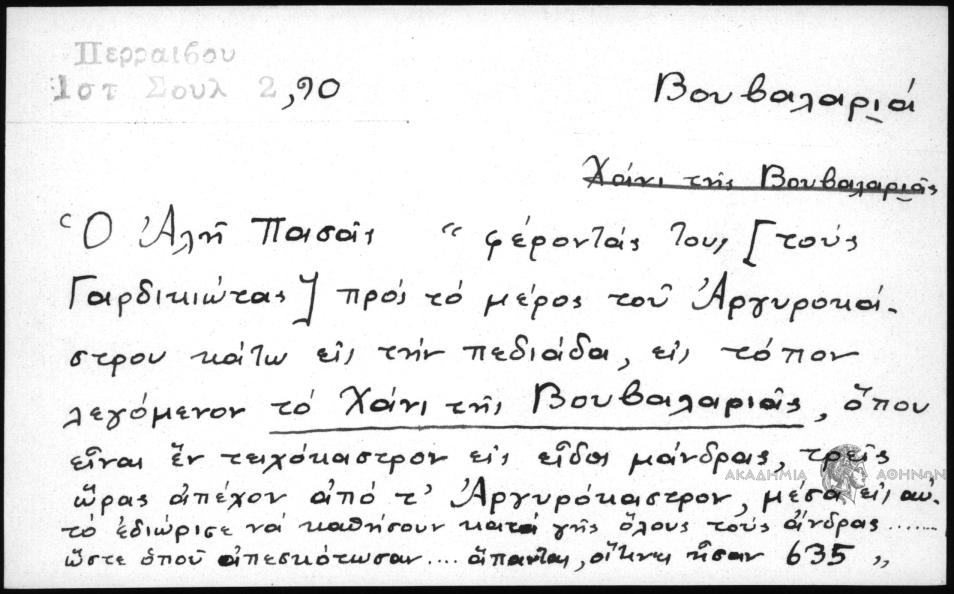 Περραιβου
Ιστ Σουλ 2,90
Βουβαλαριά
Χάνι τῆς Βουβαλαριᾶς
Ὁ Ἀλῆ Πασᾶς " φέροντάς τους [τούς
Γαρδικιώτας] πρός τό μέρος τοῦ Ἀργυροκά-
στρου κάτω εἰς τήν πεδιάδα, εἰς τόπον
λεγόμενον τό Χάνι τῆς Βουβαλαριᾶς, ὅπου
εἶναι ἕν τειχόκαστρον εἰς εἶδος μάνδρας, τρεῖς
ὥρας ἀπέχον ἀπό τ' Ἀργυρόκαστρον, μέσα εἰς αὐ-
τό ἐδιώρισε νά καθήσουν κατά γῆς ὅλους τούς ἄνδρας .......
ὥστε ὁπού ἀπεσκότωσαν .... ἅπαντας, οἵτινες ἦσαν 635 "
ΑΚΑΔΗΜΙΑ ΑΘΗΝΩΝ